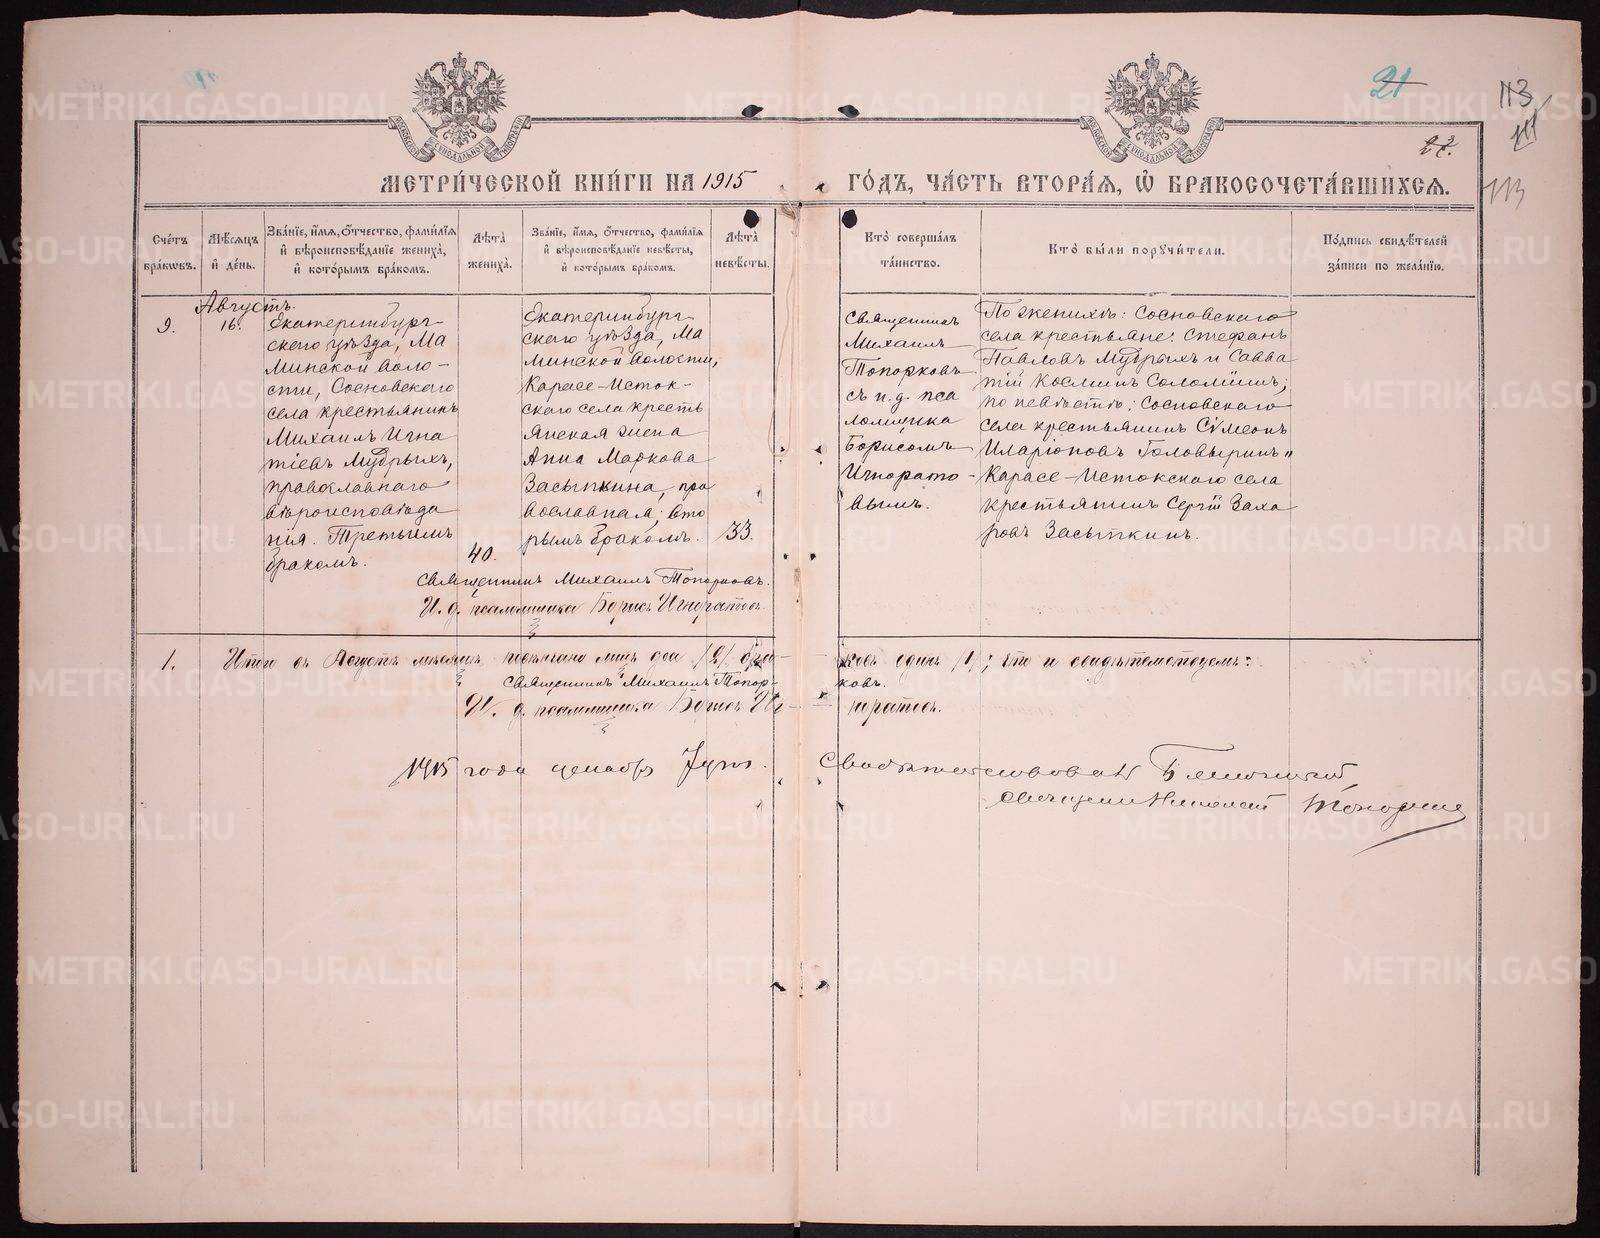 21
113
МЕТРИ́ЧЕСКОЙ КНИ́ГИ НА 1915 ГО́ДЪ, ЧА́СТЬ ВТОРА́Я, Ѡ БРАКОСОЧЕТА́ВШИХСЯ.
113
Сче́тъ
бра́кωвъ.
Мѣ́сяцъ
и де́нь.
Зва́нїе, и́мя, о́тчество, фами́лїя
и вѣроисповѣ́данїе жениха̀,
и кото́рымъ бра́комъ.
Лѣта̀
жениха̀.
Зва́нїе, и́мя, о́тчество, фами́лїя
и вѣроисповѣ́данїе невѣ́сты,
и кото́рымъ бра́комъ.
Лѣта̀
невѣ́сты.
Кто̀ соверша́лъ
та́инство.
Кто̀ бы́ли поручи́тели.
По́дпись свидѣ́телей
за́писи по жела́нїю.
9.
Августъ.
16.
Екатеринбург
скаго уѣзда, Ма
минской воло-
сти, Сосновскаго
села крестьянинъ
Михаилъ Игна
тіевъ Мудрыхъ,
православнаго
вѣроисповѣда
нія. Третьимъ
бракомъ.
40.
Екатеринбург
скаго уѣзда, Ма
минской волости,
Карасе-Исток-
скаго села кресть
янская жена
Анна Маркова
Засыпкина, пра
вославная; вто
рымъ бракомъ.
33.
Священникъ
Михаилъ
Топорковъ
съ и. д. пса
ломщика
Борисомъ
Игнорато-
вымъ.
По женихѣ: Сосновскаго
села крестьяне: Стефанъ
Павловъ Мудрыхъ и Савва
тій Косминъ Соломеинъ;
по невѣстѣ: Сосновскаго
села крестьянинъ Сѵмеонъ
Иларіоновъ Головыринъ и
Карасе-Истокскаго села
крестьянинъ Сергій Заха
ровъ Засыпкинъ.
Священникъ Михаилъ Топорковъ.
И. д. псаломщика Борисъ Игноратовъ.
1.
Итого въ Августѣ мѣсяцѣ повѣнчано лицъ два /2/ бра-
ковъ одинъ /1/; что и свидѣтельствуемъ:
Священникъ Михаилъ Топор-
ковъ.
И. д. псаломщика Борисъ Иг-
норатовъ.
1915 года
Свидѣтельствовалъ Благочинный
Священникъ Николай
METRIKI.GASO-URAL.RU